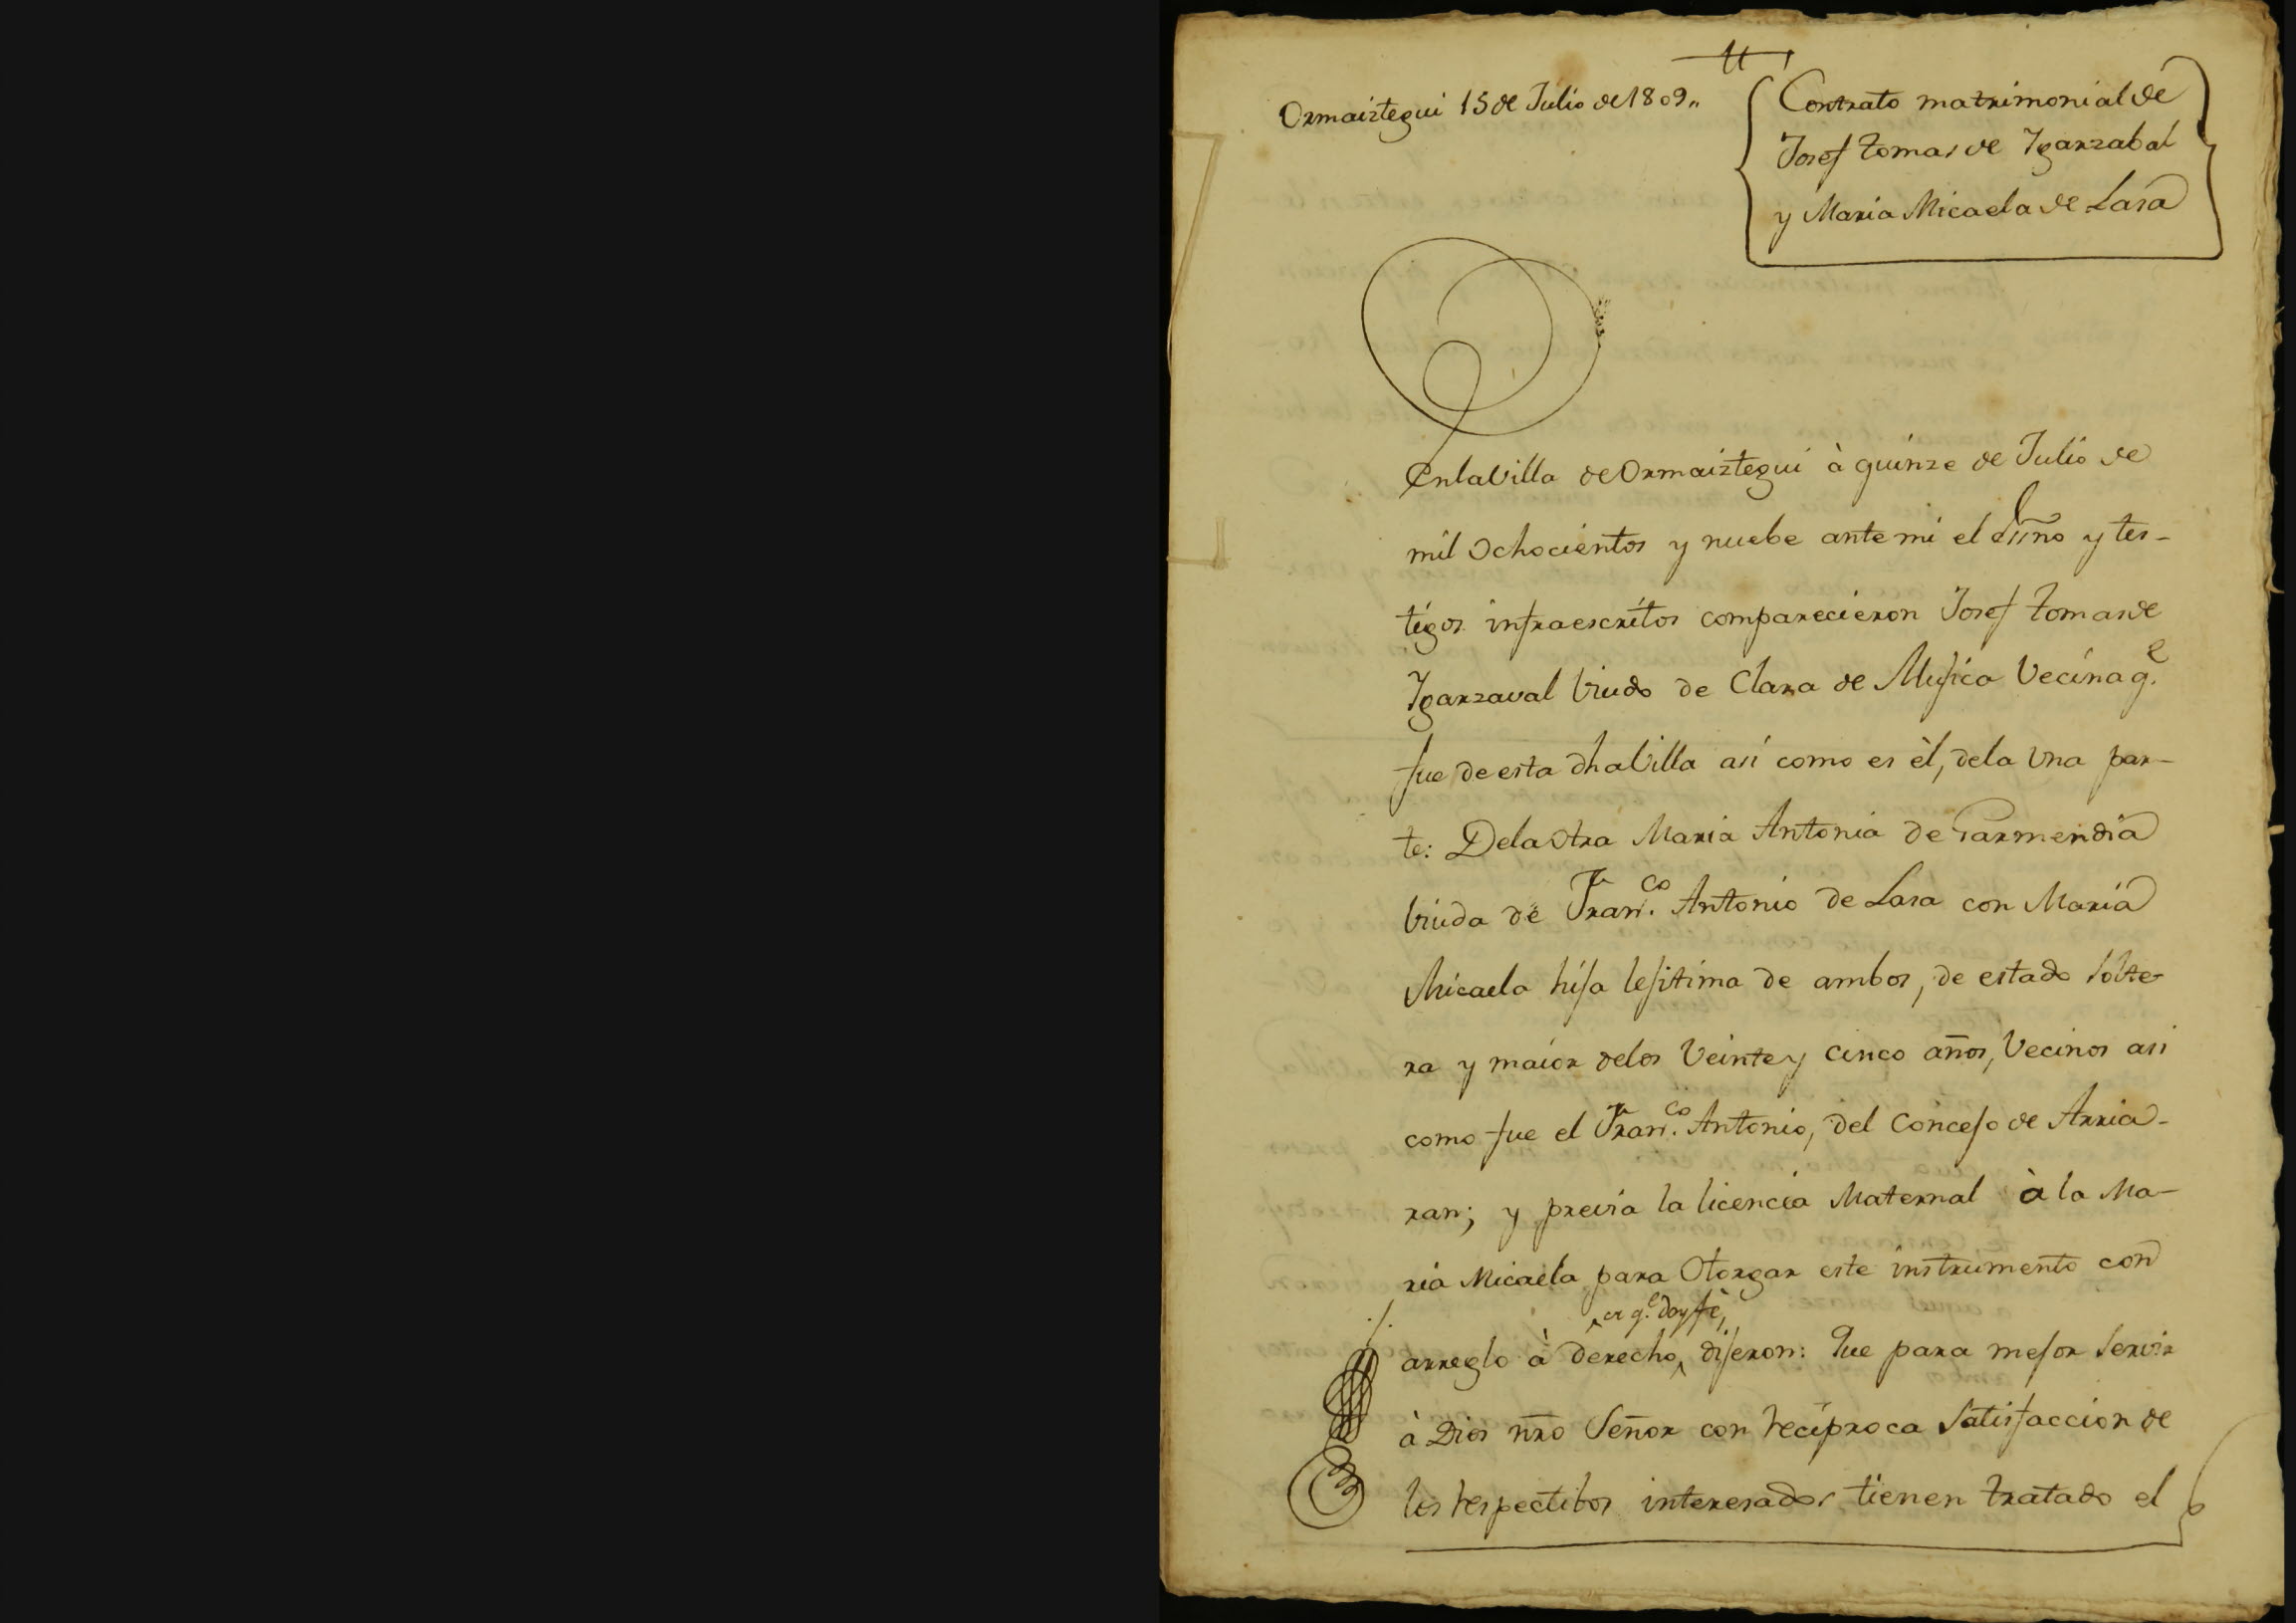 Ormaiztegui 15 de Julio de 1809,,
Contrato matrimonial de
Josef tomas de Ygarzabal
y Maria Micaela de Lasa
En la Villa de Ormaiztegui à quinze de Julio de
mil Ochocientos y nuebe ante mi el Ssño y tes-
tigos infraescritos comparecieron Josef tomas de
Ygarzaval biudo de Clara de Mujica Vecina q.e
fue de esta dha Villa asi como es èl, dela Una par-
te: Dela Otra Maria Antonia de Garmendia
biuda de Fran.co Antonio de Lasa con Maria
Micaela hija lejitima de ambos, de estado solte-
ra y maior delos Veinte y cinco años, Vecinos asi
como fue el Fran.co Antonio, del Concejo de Arria-
ran; y previa la licencia Maternal à la Ma-
ria Micaela para Otorgar este instrumento con
de q.e doy fè,
arreglo à derecho, dijeron: Que para mejor servir
à Dios nro Señor con reciproca satisfaccion de
los respectibos interesados tienen tratado el